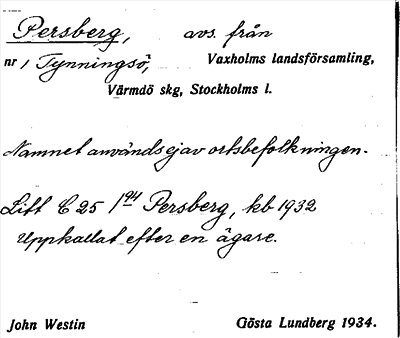 Persberg, avs. från
nr 1 Tynningsö, Vaxholms landsförsamling,
Värmdö skg, Stockholms l.
Namnet användes ej av ortsbefolkningen.
Litt C 25 Persberg, kb 1932
Uppkallat efter en ägare.
John Westin Gösta Lundberg 1934.